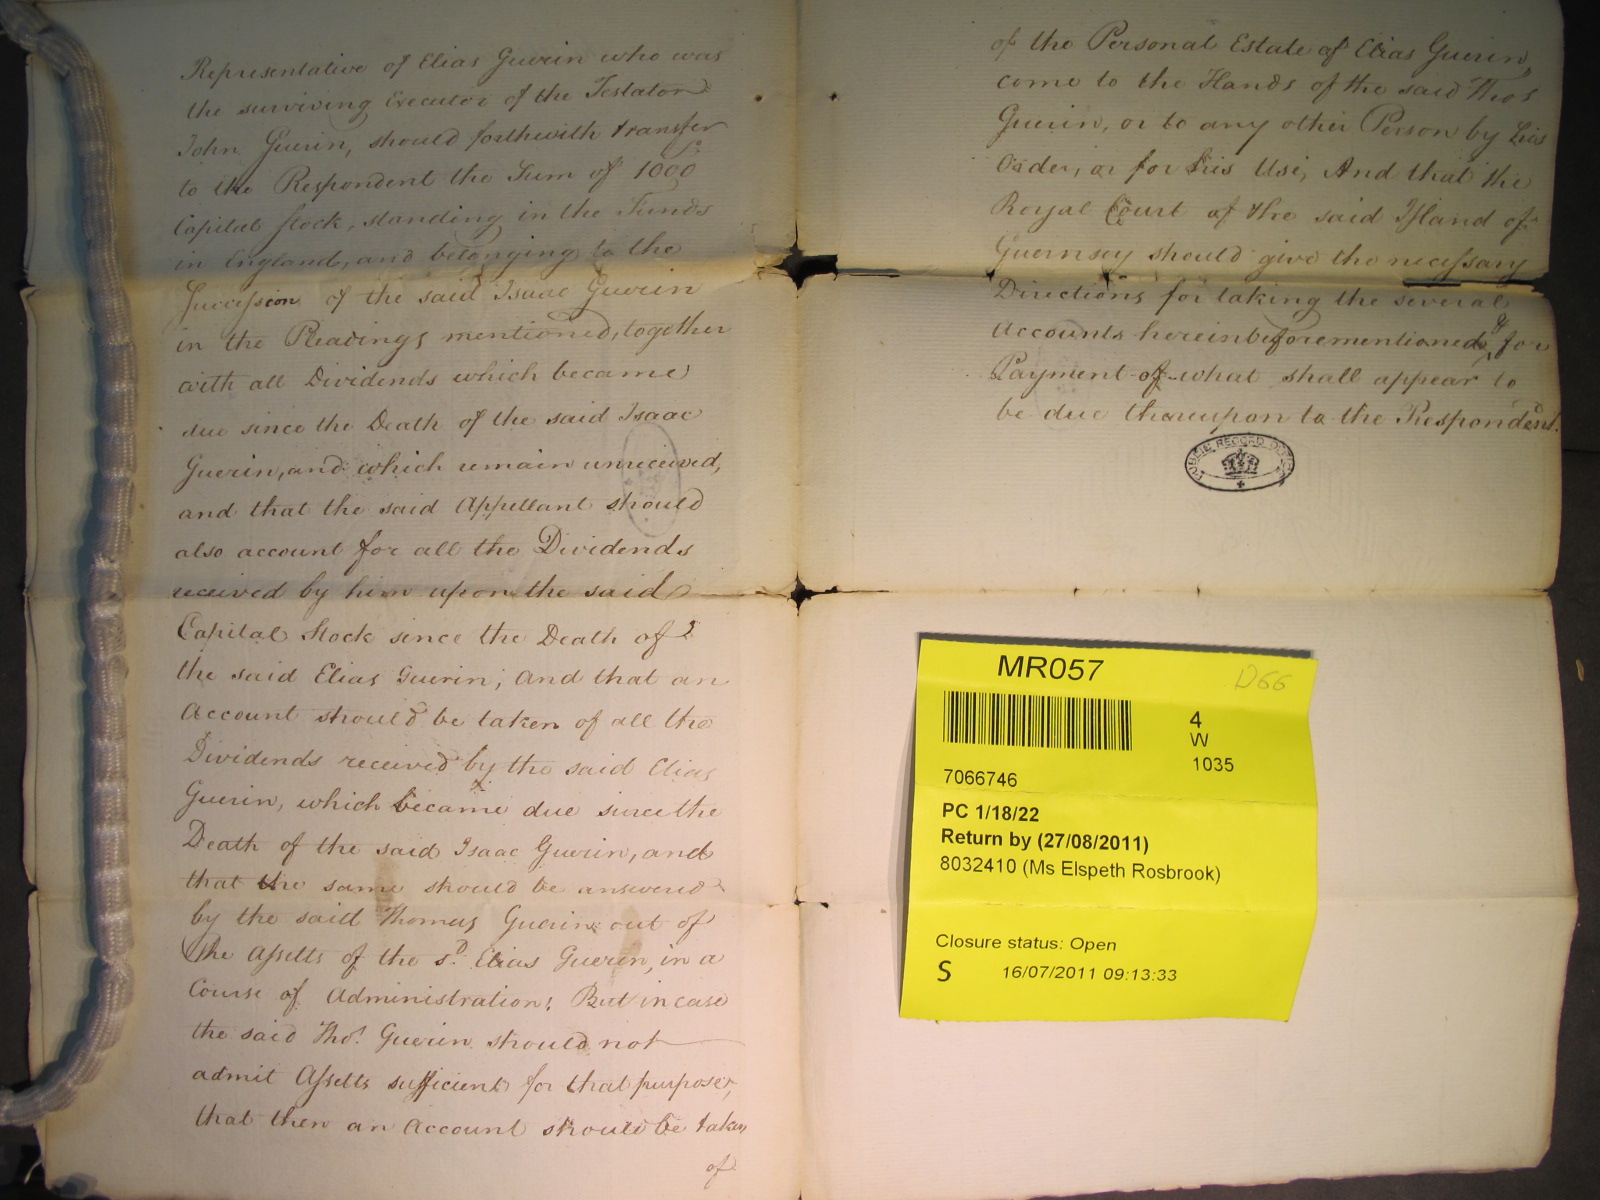 Representative of Elias Guerin who was
the surviving Executor of the Testator
John Guerin, should forthwith transfer
to the Respondent the Sum of 1000
Capital Stock, standing in the Funds
in England, and belonging to the
Succession of the said Isaac Guerin
in the Pleadings mentioned, together
with all Dividends which became
due since the Death of the said Isaac
Guerin, and which remain unreceived,
and that the said Appellant should
also account for all the Dividends
received by him upon the said
Capital Stock since the Death of
the said Elias Guerin; and that an
Account should be taken of all the
Dividends received by the said Elias
Guerin, which became due since the
Death of the said Isaac Guerin, and
that the same should be answered
by the said Thomas Guerin out of
the Assetts of the sd. Elias Guerin, in a
Course of Administration; But in case
the said Thos. Guerin should not
admit Assetts sufficient for that purpose,
that then an Account should be taken
of
of the Personal Estate of Elias Guerin,
come to the Hands of the said Thos
Guerin, or to any other Person by his
Order, or for his Use; And that the
Royal Court of the said Island of
Guernsey should give the necessary
Directions for taking the several
Accounts hereinbeforementioned, & for
Payment of what shall appear to
be due thereupon to the Respondent.
PUBLIC RECORD OFFICE
MR057
D66
4
W
1035
7066746
PC 1/18/22
Return by (27/08/2011)
8032410 (Ms Elspeth Rosbrook)
Closure status: Open
S 16/07/2011 09:13:33